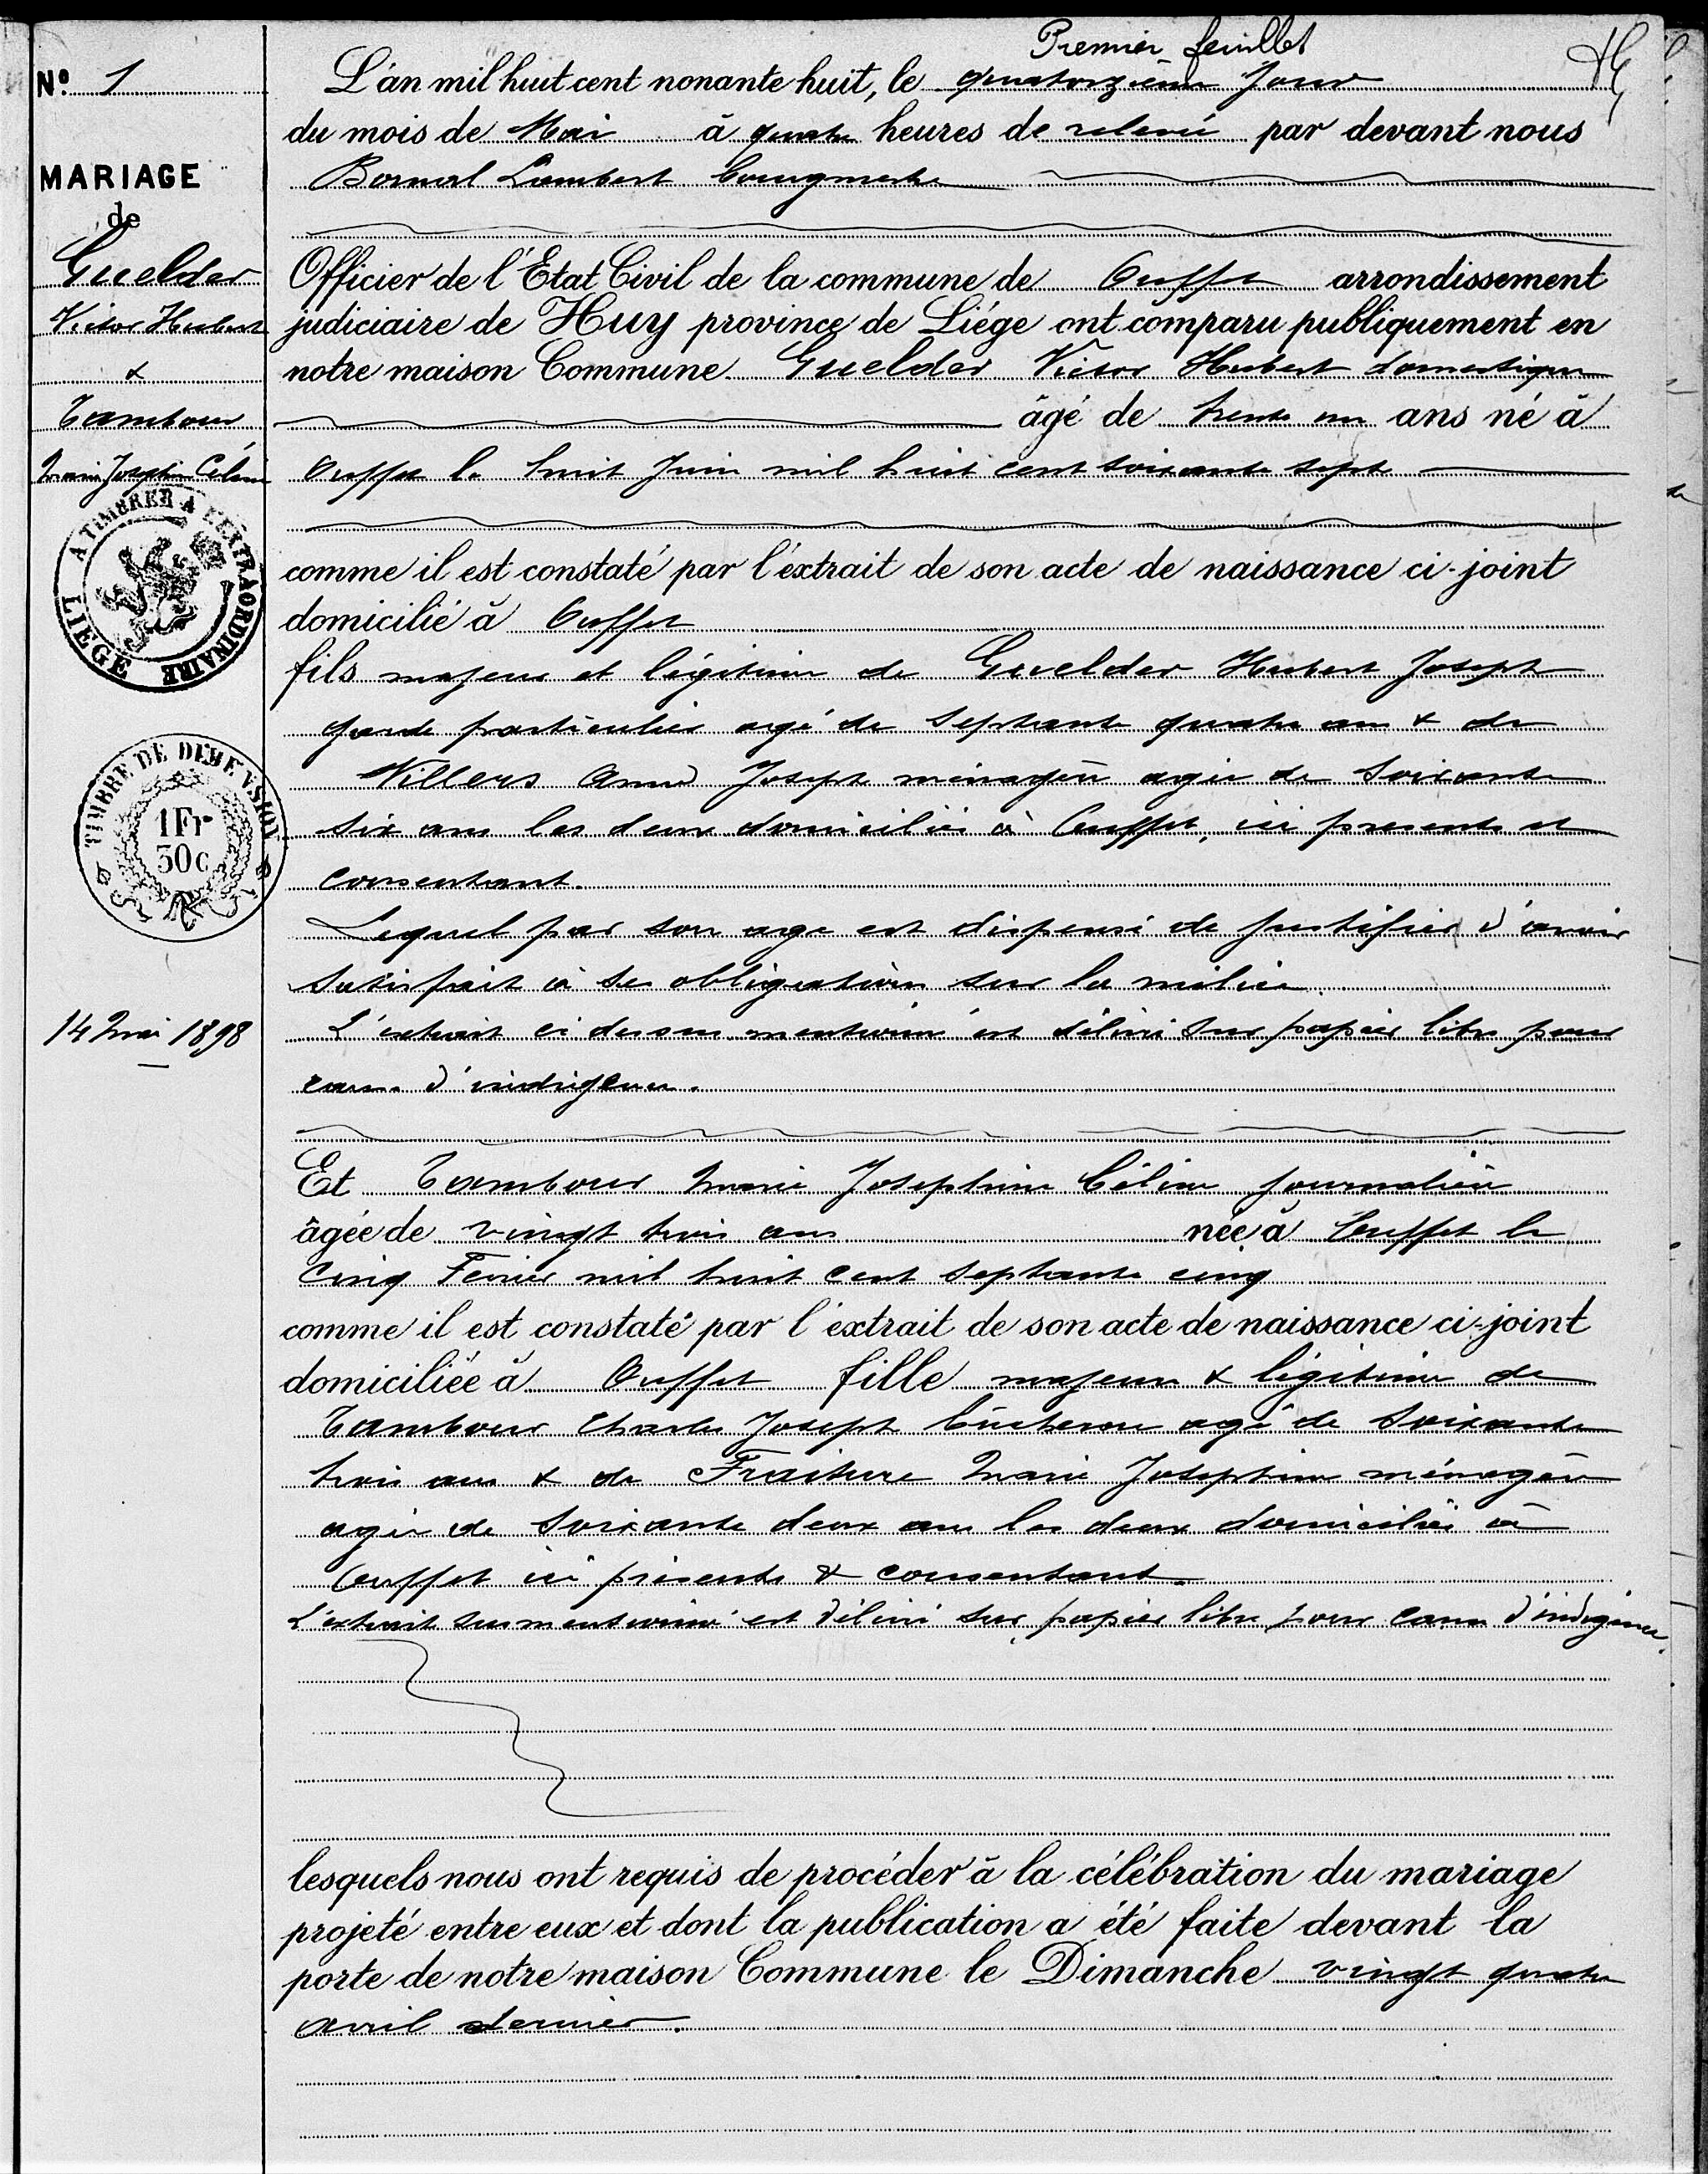 Premier feuillet
Nº 1
MARIAGE
de
Guelder
Victor Hubert
&
Tambour
Marie Joséphine Céline
A TIMBRER A L'EXTRAORDINAIRE
LIEGE
TIMBRE DE DIMENSION
1 Fr
30 c
14 Mai 1898
L'an mil huit cent nonante huit, le quatorzième jour
du mois de Mai à quatre heures de relevée par devant nous
Bornal Lambert bourgmestre
Officier de l'Etat Civil de la commune de Ouffet arrondissement
judiciaire de Huy province de Liége ont comparu publiquement en
notre maison Commune Guelder Victor Hubert domestique
âgé de trente un ans né à
Ouffet le huit Juin mil huit cent soixante sept
comme il est constaté par l'extrait de son acte de naissance ci-joint
domicilié à Ouffet
fils majeur et légitime de Guelder Hubert Joseph
garde particulier agé de septante quatre ans & de
Villers Anne Joseph ménagère agée de soixante
six ans les deux domiciliés à Ouffet, ici presents et
consentant.
Lequel par son age est dispensé de justifier d'avoir
satisfait à ses obligations sur la milice.
L'extrait ci dessus mentionné est délivré sur papier libre pour
cause d'indigence.
Et Tambour Marie Joséphine Céline journalière
âgée de vingt trois ans née à Ouffet le
cinq Fevrier mil huit cent septante cinq
comme il est constaté par l'extrait de son acte de naissance ci-joint
domiciliée à Ouffet fille majeure & légitime de
Tambour Charles Joseph bûcheron agé de soixante
trois ans & de Fraiture Marie Joséphine ménagère
agée de soixante deux ans les deux domiciliés à
Ouffet ici présents & consentant.
L'extrait susmentionné est délivré sur papier libre pour cause d'indigence.
lesquels nous ont requis de procéder à la célébration du mariage
projeté entre eux et dont la publication a été faite devant la
porte de notre maison Commune le Dimanche vingt quatre
avril dernier.